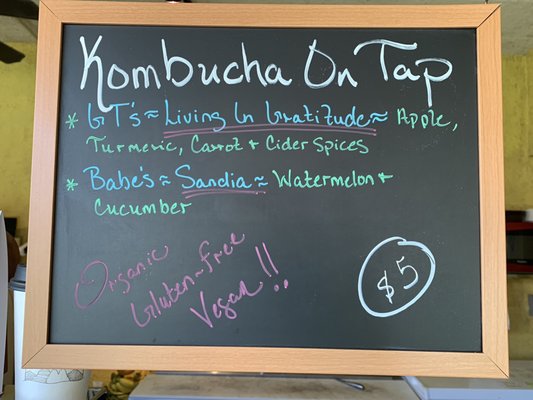 Kombucha On Tap
* GT's ≈ Living In Gratitude ≈ Apple,
Turmeric, Carrot + Cider Spices
* Babe's ≈ Sandia ≈ Watermelon +
Cucumber
Organic
Gluten-free
Vegan!!
$5